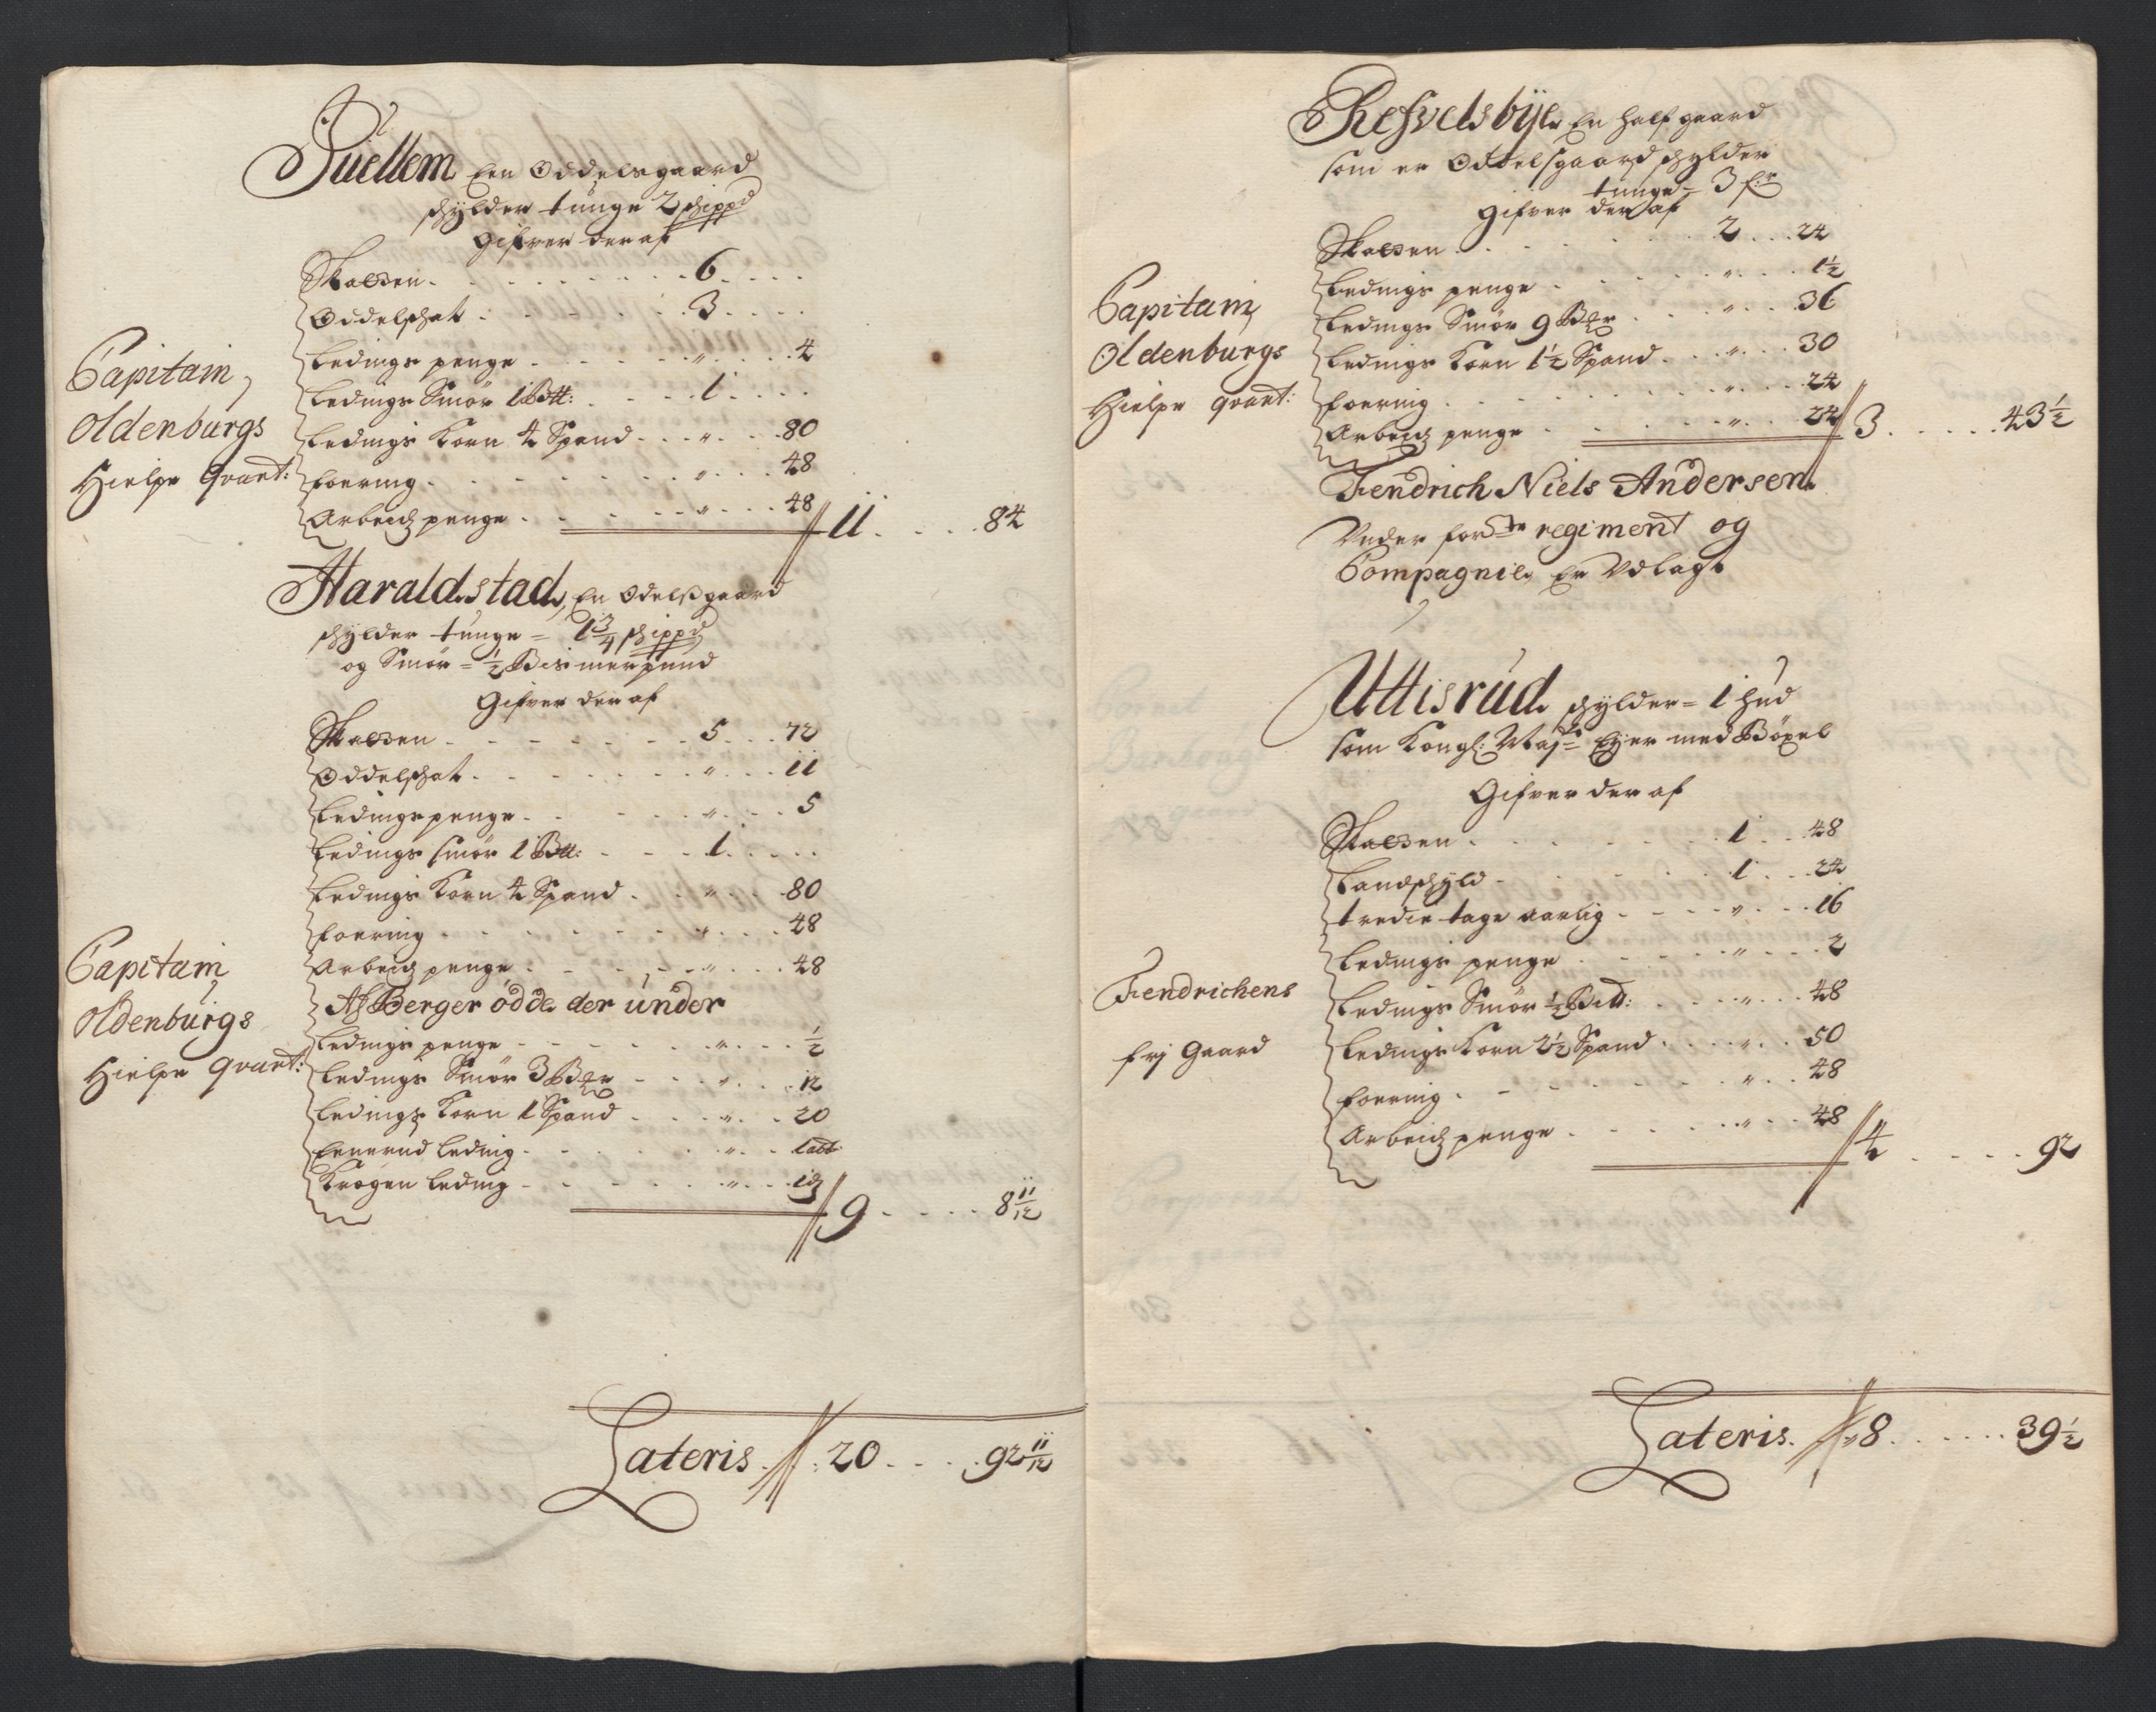 Quellem Een Oddelsgaard
schylder tunge 2 schippd
Gifver deraf
Skatten 6
Oddelschat 3
Ledings penge " 4
Ledings Smör 1 Btt: 1
Ledings Korn 4 Spand " 80
Foering " 48
Arbeidz penge " 48
11 84
Capitain
Oldenburgs
Hielpe Qvart:
Haraldstad, En Odelsgaard
schylder tunge = 1 3/4 schippd
og Smör = 1/2 Bismerpund
Gifver der af
Skatten 5 72
Oddelschat " 11
Ledings penge " 5
Ledings smör 1 Btt: 1
Ledings Korn 4 Spand " 80
Foering " 48
Arbeidz penge " 48
Af Berger ödde der under
Ledings penge " 1/2
Ledings Smör 3 Bger " 12
Ledings Korn 1 Spand " 20
Leding "
Krogen Leding "
9 8 11/12
Capitain
Oldenburgs
Hielpe qvart:
Lateris 20 92 11/12
Resvelsbye En half gaard
som er Oddelsgaard schylder
tunge = 3 fr
Gifver der af
Skatten 2 24
Ledings penge " 1 1/2
Ledings Smör 9 Bger " 36
Ledings Korn 1 1/2 Spand " 30
Foering " 24
Arbeidz penge " 24
3 43 1/2
Capitain
Oldenburgs
Hielpe qvart:
Fendrich Niels Andersen
Under forne regiment og
Compagnie, Er Udlagt
Uttisrud schylder = 1 hud
som Kongl: Mayt Eyer med Böxel
Gifver der af
Skatten 1 48
Landschyld 1 24
tredie tage aarlig " 16
Ledings penge " 2
Ledings Smör 1/2 Btt: " 48
Ledings Korn 2 1/2 Spand " 50
Foering " 48
Arbeidz penge " 48
4 92
Fendrichens
frj Gaard
Lateris 8 39 1/2